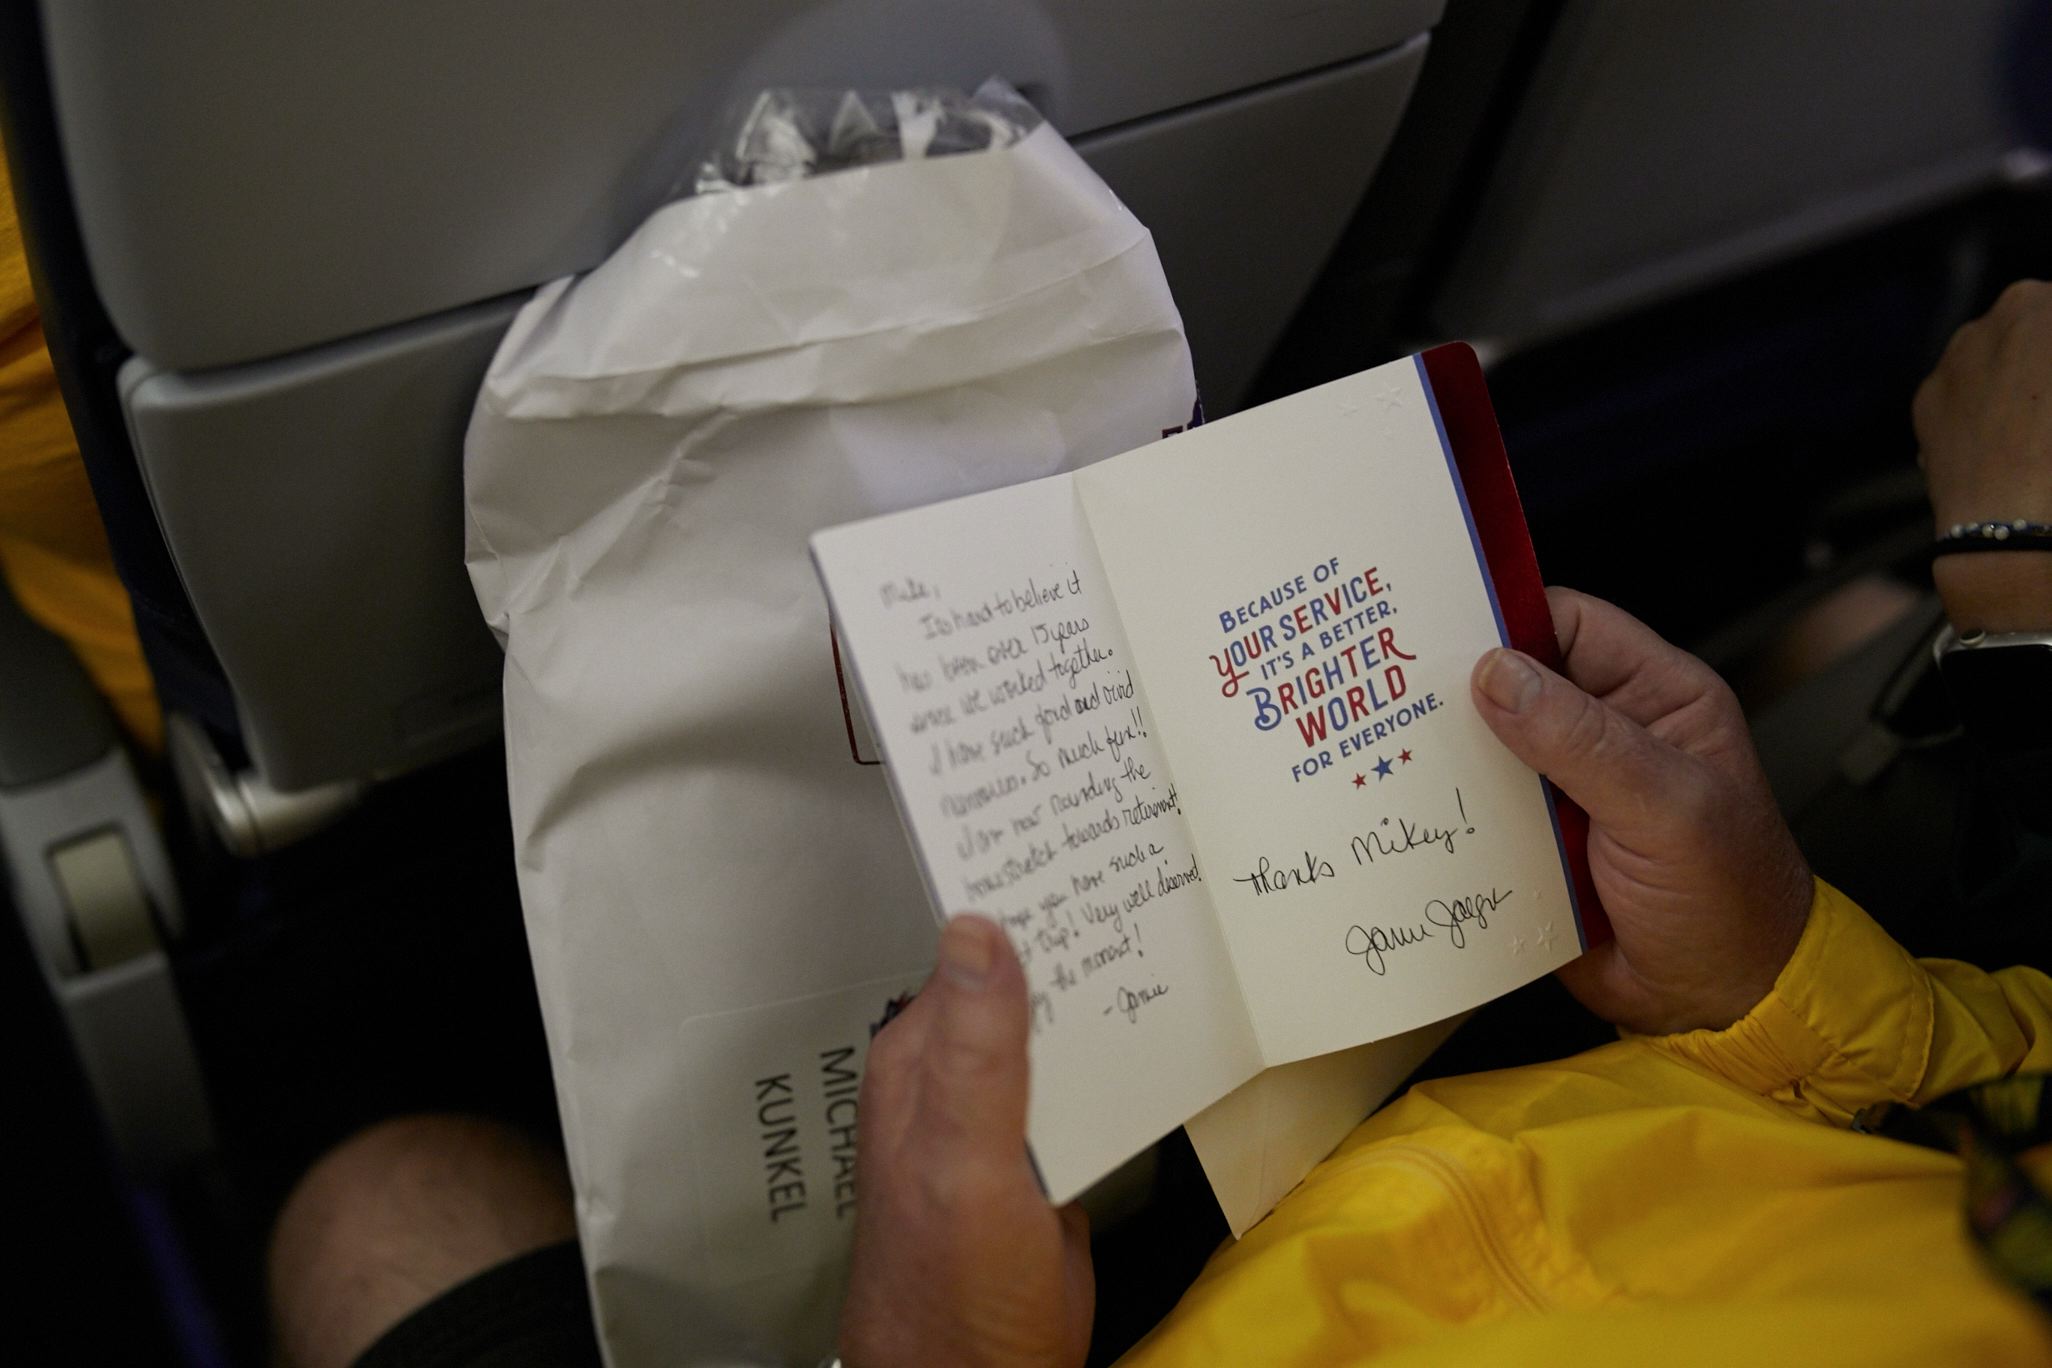 Mike,
It's hard to believe it
has been over 15 years
since we worked together.
I have such fond and vivid
memories. So much fun!!
I am now rounding the
homestretch towards retirement!
hope you have such a
trip! Very well deserved!
the moment!
- Jamie
BECAUSE OF
YOUR SERVICE,
IT'S A BETTER,
BRIGHTER
WORLD
FOR EVERYONE.
Thanks Mikey!
Jamie Jaegr
MICHAEL
KUNKEL